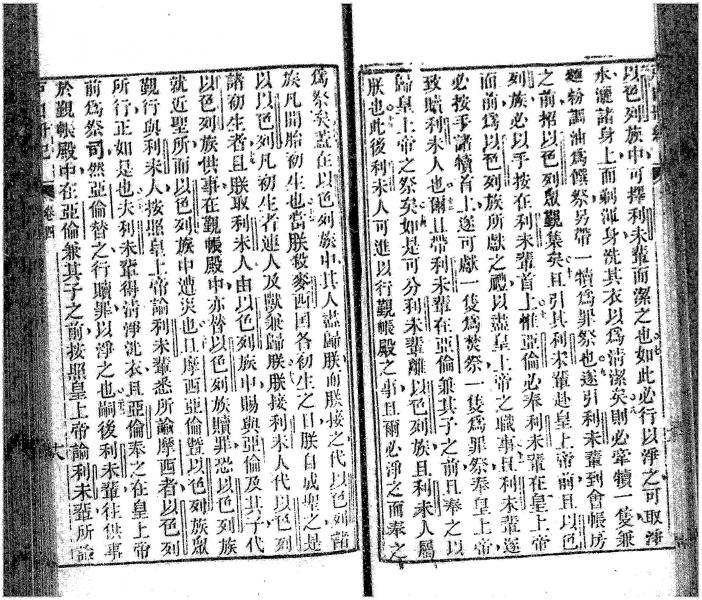 以色列族中可擇利未輩而潔之也如此必行以淨之可取淨
水灑諸身上而剃渾身洗其衣以爲清潔矣則必牽犢一隻兼
麵粉調油爲饌祭另帶一犢爲罪祭也遂引利未輩到會帳房
之前招以色列眾覲集矣且引其利未輩赴皇上帝前且以色
列族必以手按在利未輩首上惟亞倫必奉利未輩在皇上帝
面前爲以色列族所獻之禮以盡皇上帝之職事且利未輩遂
必按手諸犢首上遂可獻一隻爲焚祭一隻爲罪祭奉皇上帝
致贖利未人也爾且帶利未輩在亞倫兼其子之前且奉之以
歸皇上帝之祭矣如是可分利未輩離以色列族且利未人屬
朕也此後利未人可進以行覲帳殿之事且爾必淨之而奉之
爲祭矣蓋在以色列族中其人盡歸朕而朕接之代以色列諸
族凡開胎初生也當朕敎麥西國各初生之日朕自成聖之是
以以色列凡初生者連人及獸兼歸朕朕接利未人代以色列
諸初生者且朕取利未人由以色列族中賜與亞倫及其子代
以色列族供事在覲帳殿中亦替以色列族贖罪恐以色列族
就近聖所而以色列族中遭災也且摩西亞倫暨以色列族眾
覲行與利未人按照皇上帝諭利未輩悉所諭摩西者以色列
所行正如是也夫利未輩得清淨洗衣且亞倫奉之在皇上帝
前爲祭司然亞倫替之行贖罪以淨之也嗣後利未輩往供事
於覲帳殿中在亞倫兼其子之前按照皇上帝諭利未輩所諭
卷四